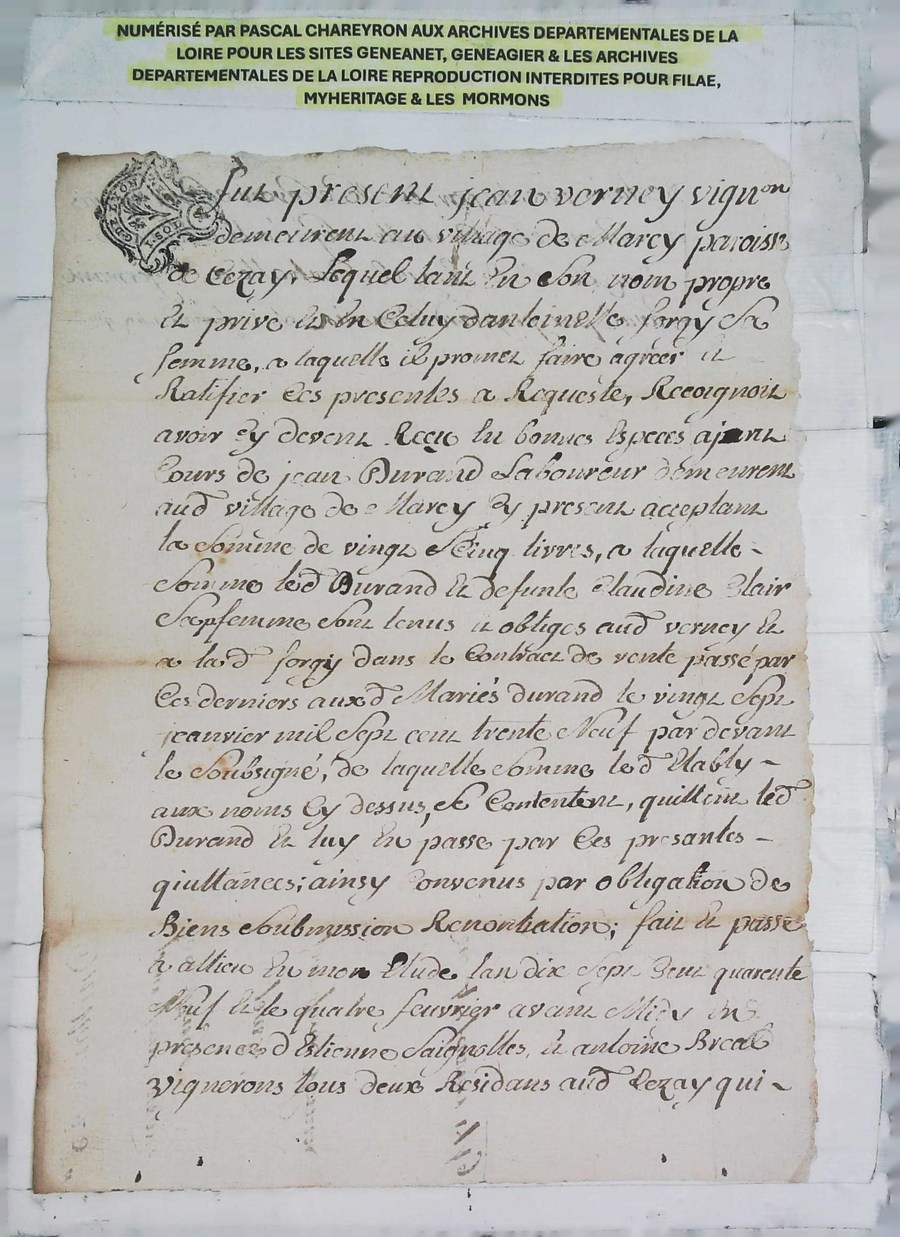 NUMÉRISÉ PAR PASCAL CHAREYRON AUX ARCHIVES DEPARTEMENTALES DE LA
LOIRE POUR LES SITES GENEANET, GENEAGIER & LES ARCHIVES
DEPARTEMENTALES DE LA LOIRE REPRODUCTION INTERDITES POUR FILAE,
MYHERITAGE & LES MORMONS
GDE LYON
1·SOL
fut present jean verney vignon
demeurent au village de Marcy paroisse
de Cezay, Lequel tant En Son nom propre
Et privé Et En Celuy dantoinette forgy Sa
femme, a laquelle il promet faire agréer et
Ratifier Ces presentes a Requeste, Recoignoit
avoir Cy devent Reçu En bonnes Especes ajant
Cours de jean Durand Laboureur demeurent
aud village de Marcy Cy present acceptant
la Somme de vingt Cinq livres, a laquelle
Somme led Durand Et defunte Claudine Clair
Sa femme Sont tenus et obligés aud verney Et
a lad forgy dans le Contract de vente passé par
Ces derniers auxd Mariés durand le vingt Sept
jeanvier mil Sept cent trente Neuf par devant
le Soubsigné, de laquelle Somme led Etably
aux noms Cy dessus, Se Contentent, quittent led
Durand Et luy En passe par Ces presantes
qiuttances; ainsy Convenus par obligation de
Biens Soubmission Renontiation; fait Et passé
a allieu En mon Etude lan dix Sept Cent quarente
Neuf Et le quatre feuvrier avant Midy En
presence d Estienne Saignolles, et antoine Breal
vignerons tous deux Residans aud Cezay qui